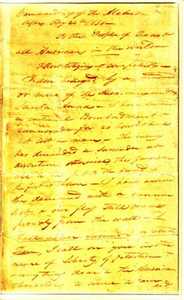 Commandancy of the Alamo
To the People of Texas &
all Americans in the world
Fellow citizens & compatriots
I am besieged, by a
or more of the
Santa Anna
a continual Bombardment &
cannonade for
lost a man The enemy
has demanded a surrender at
discretion, otherwise, the garrison
are to be put to the
the fort is taken I have answered
the demand with a cannon
shot, & our flag still waves
proudly from the walls I
shall never surrender or retreat
Then, I call on you in the
name of Liberty, of patriotism &
every thing dear to the American
character, to come to our